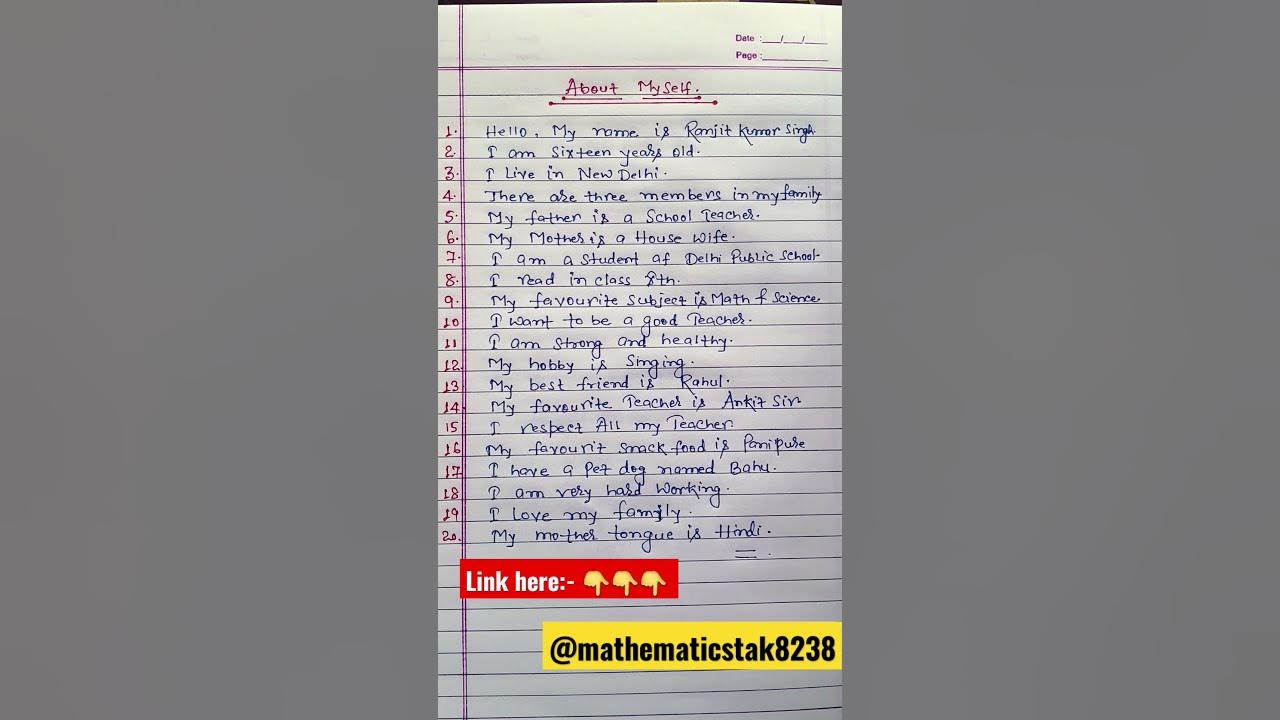 Date :___/___/____
Page :____________
About Myself.
1. Hello, My name is Ranjit Kumar Singh.
2. I am Sixteen years old.
3. I Live in New Delhi.
4. There are three members in my family.
5. My father is a School Teacher.
6. My Mother is a House Wife.
7. I am a student of Delhi Public School.
8. I read in class 8th.
9. My favourite subject is Math & Science.
10 I want to be a good Teacher.
11 I am strong and healthy.
12. My hobby is Singing.
13 My best friend is Rahul.
14. My favourite Teacher is Ankit Sir.
15 I respect All my Teacher.
16 My favourit snack food is Panipure
17 I have a Pet dog named Bahu.
18 I am very hard working.
19 I Love my family.
20. My mother tongue is Hindi.
Link here:- 👇👇👇
@mathematicstak8238